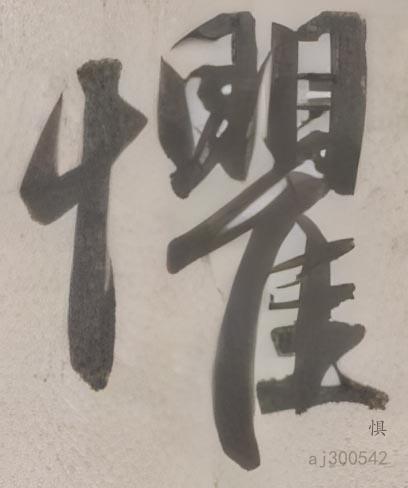 懼
惧
aj300542